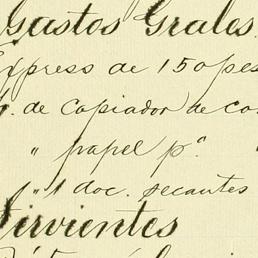 Gastos Grales.
Express de 150 pes
de Copiador de co
" papel pª. "
" 1 doc. secantes
Sirvientes